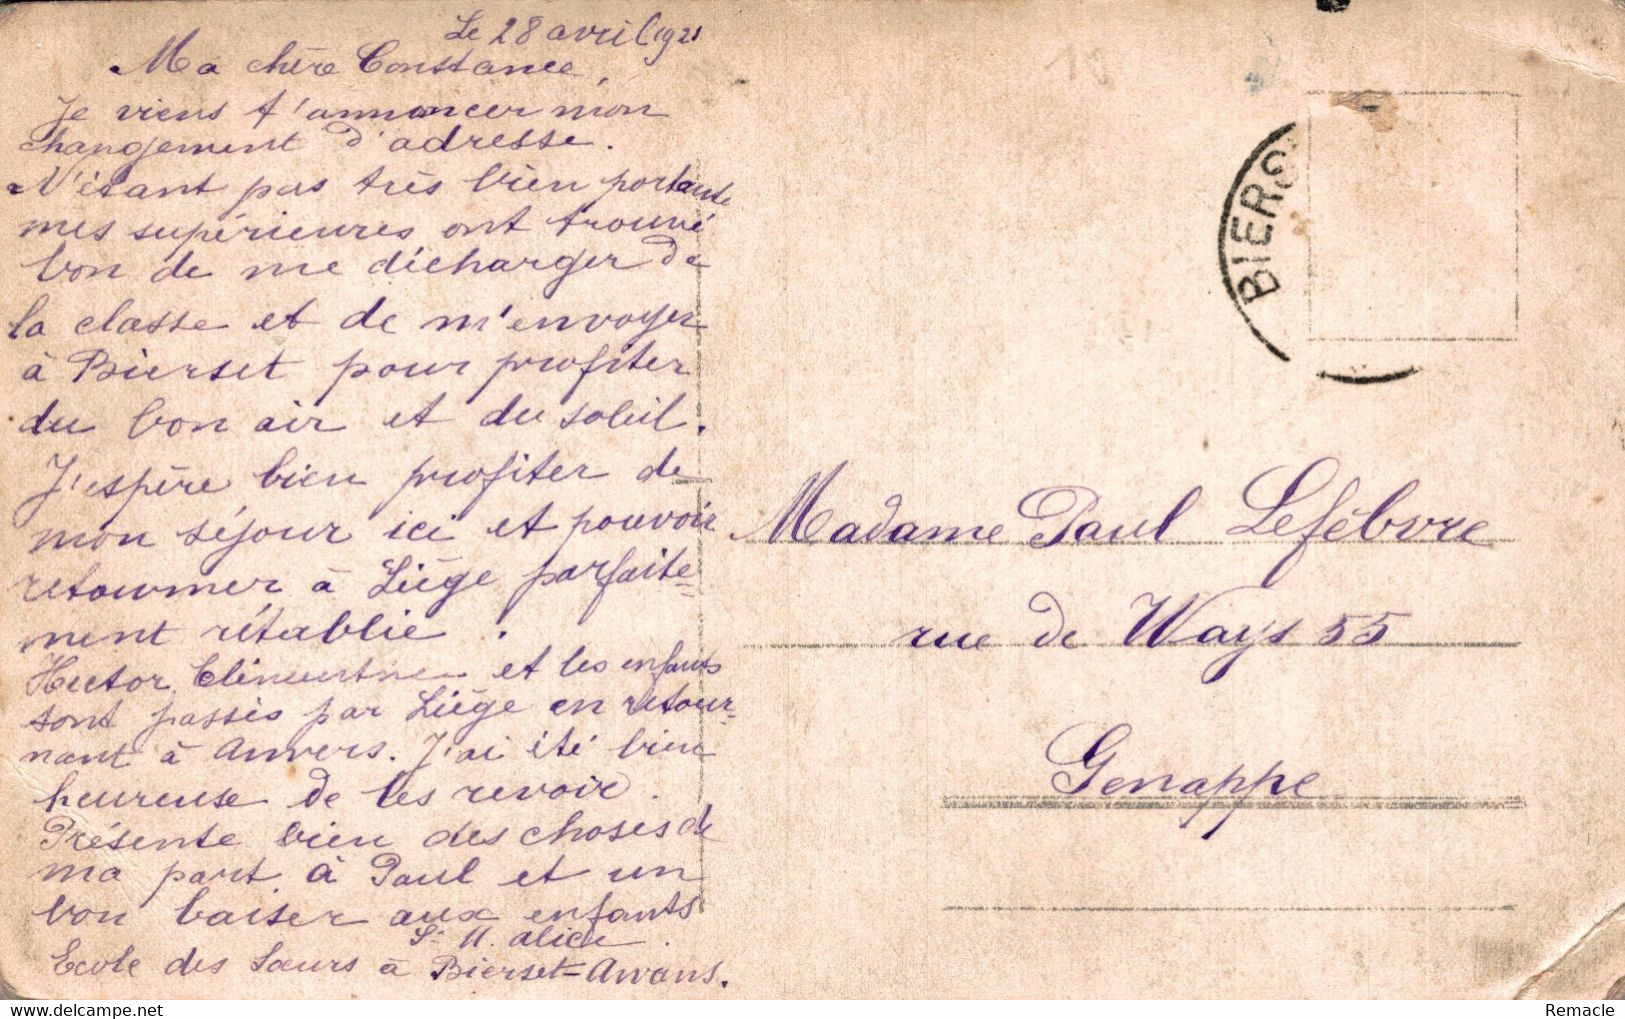 Le 28 avril 1921
Ma chère Constance,
Je viens t'annoncer mon
changement d'adresse.
N'étant pas très bien portante
mes supérieures ont trouvé
bon de me décharger de
la classe et de m'envoyer
à Bierset pour profiter
du bon air et du soleil.
J'espère bien profiter de
mon séjour ici et pouvoir
retourner à Liège parfaite=
ment rétablie.
Hector, Clémentine et les enfants
sont passés par Liège en retour=
nant à Anvers. J'ai été bien
heureuse de les revoir.
Présente bien des choses de
ma part à Paul et un
bon baiser aux enfants
Sr M. Alice.
Ecole des Sœurs à Bierset=Awans.
BIERS
Madame Paul Lefébvre
rue de Ways 55
Genappe
delcampe.net
Remacle